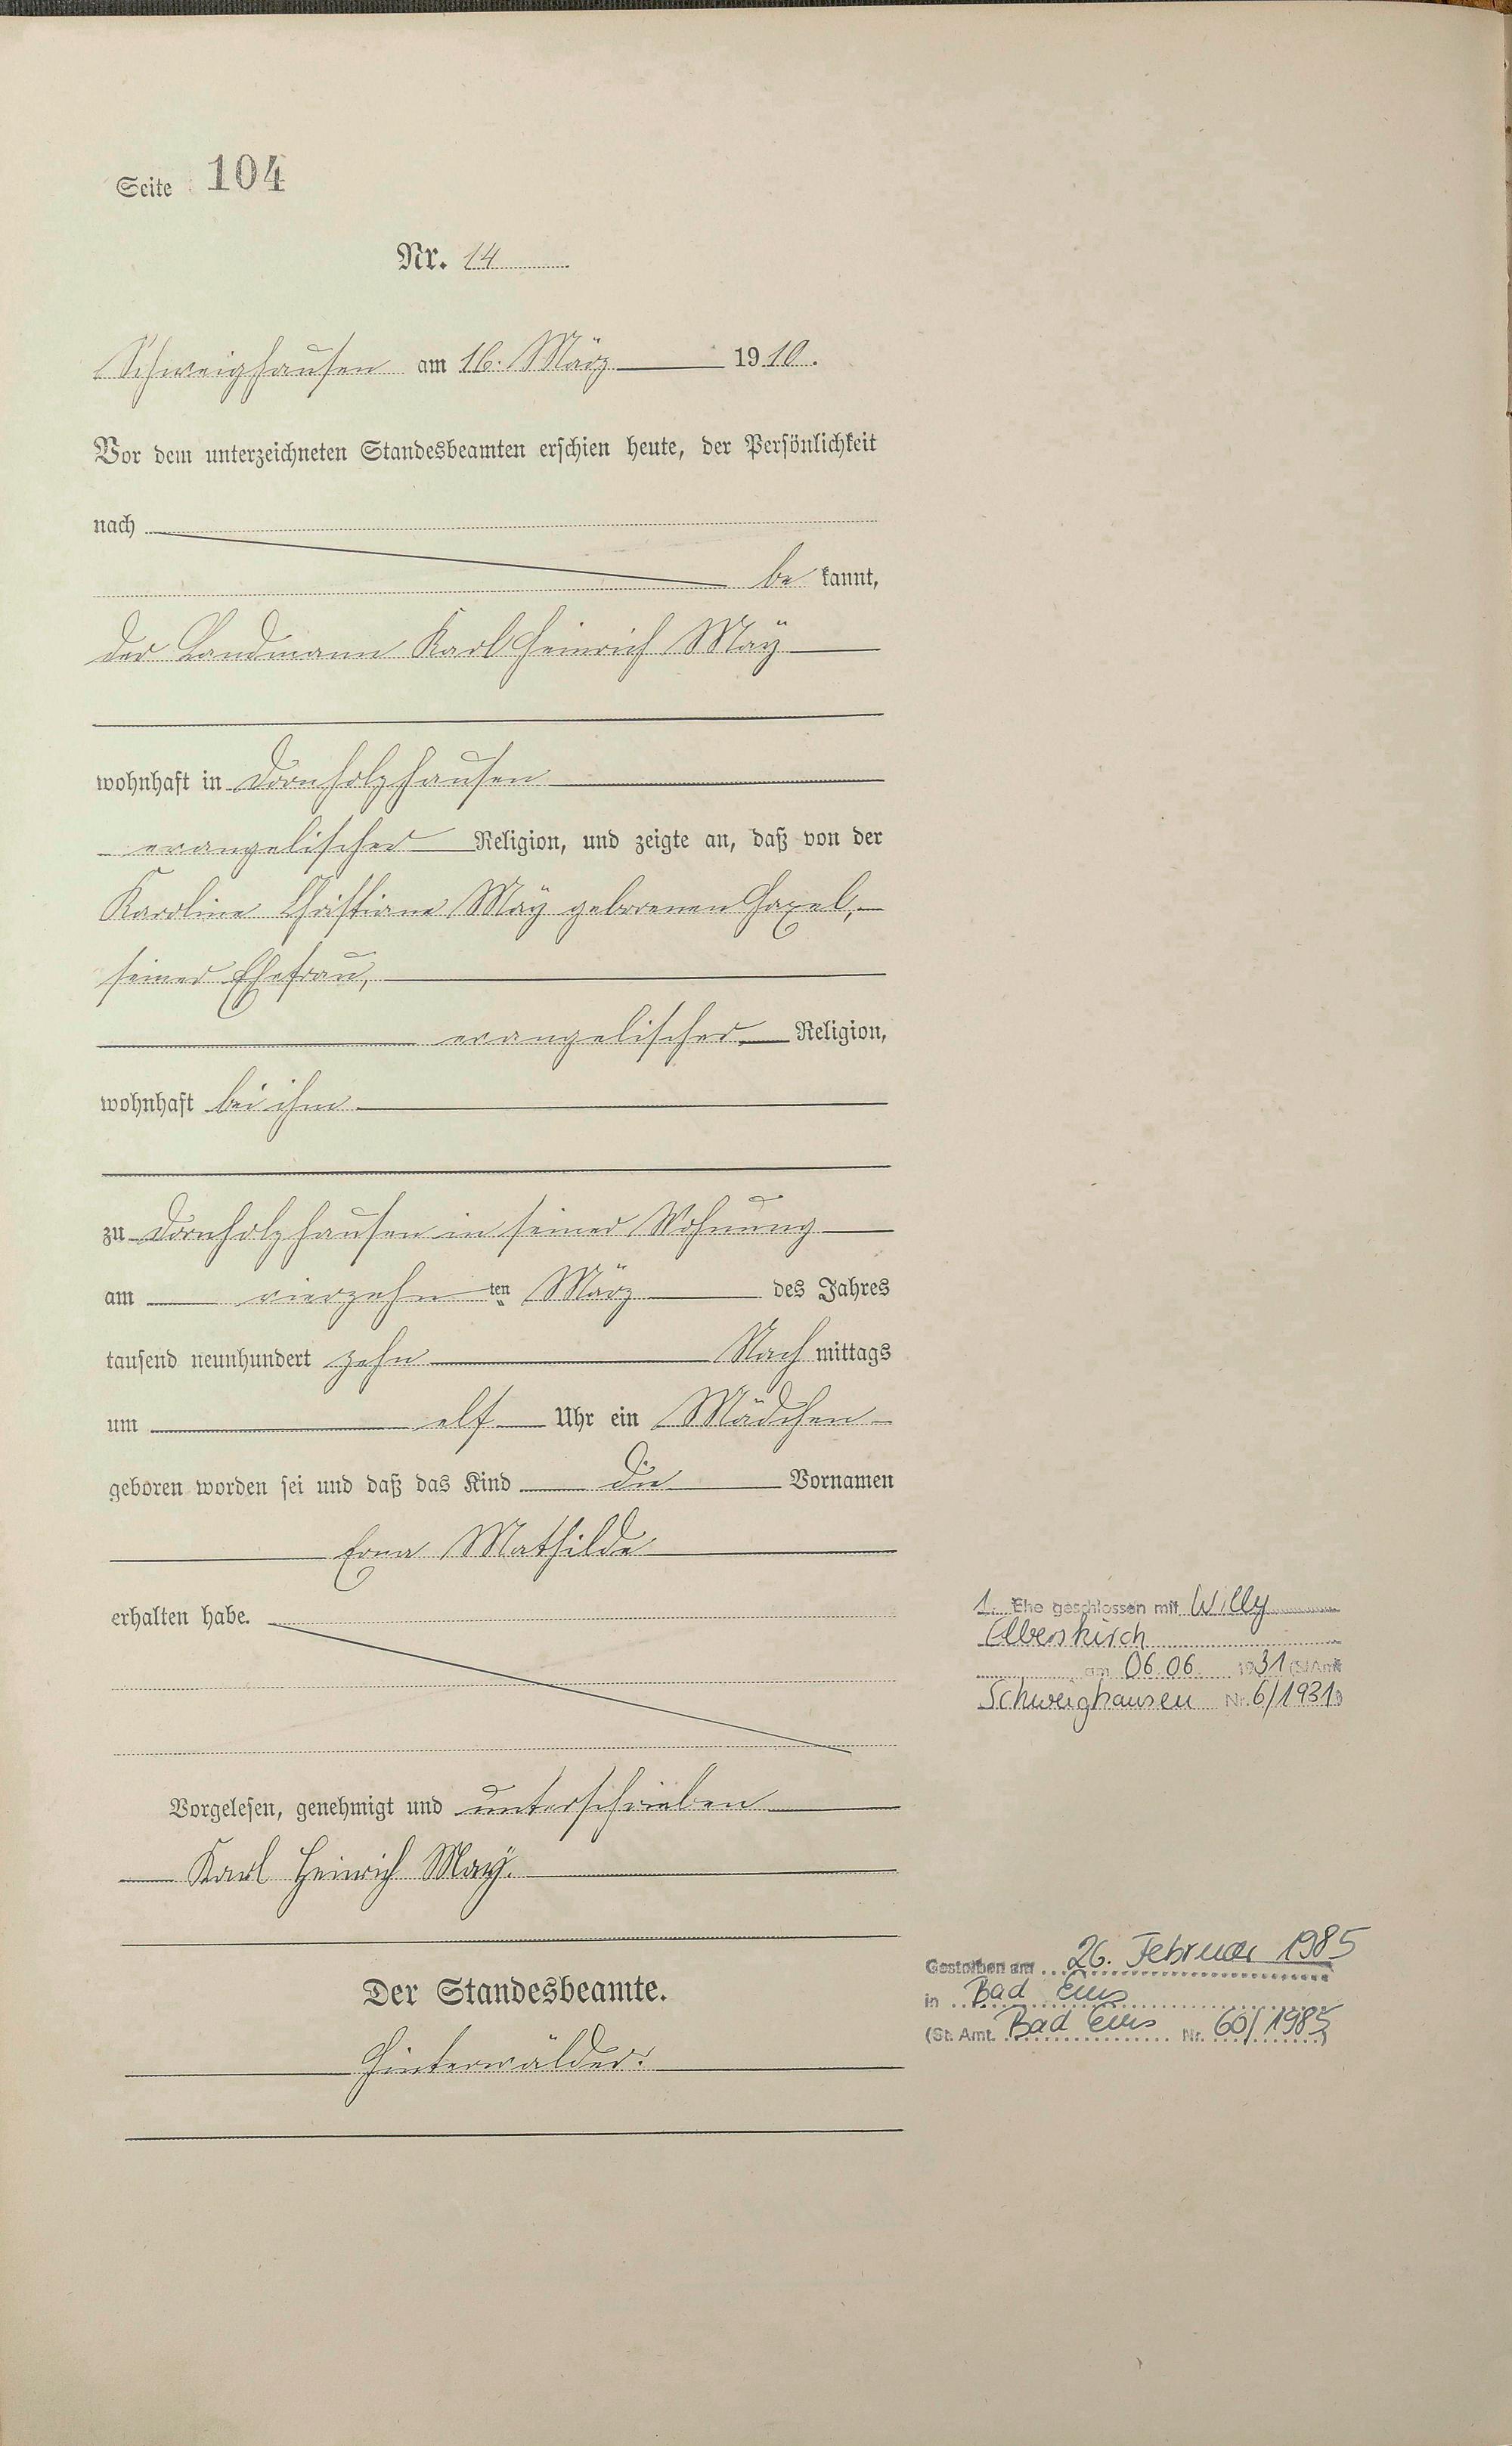 Seite 104
Nr. 14
Schweighausen am 16. März 1910.
Vor dem unterzeichneten Standesbeamten erschien heute, der Persönlichkeit
nach
be kannt,
der Landmann Karl Heinrich Maÿ
wohnhaft in Dornholzhausen
evangelischer Religion, und zeigte an, daß von der
Karoline Christiane Maÿ geborenen Haxel,
seiner Ehefrau,
evangelischer Religion,
wohnhaft bei ihm
zu Dornholzhausen in seiner Wohnung
am vierzehn ten März des Jahres
tausend neunhundert zehn Nach mittags
um elf Uhr ein Mädchen
geboren worden sei und daß das Kind die Vornamen
Erna Mathilde
erhalten habe.
1. Ehe geschlossen mit Willy
Elberskirch
am 06.06. 1931 (StAmt
Schweighausen Nr. 6/1931)
Vorgelesen, genehmigt und unterschrieben
Karl Heinrich Maÿ.
Der Standesbeamte.
Hinterwälder.
Gestorben am 26. Februar 1985
in Bad Ems
(St. Amt. Bad Ems Nr. 60/1985)